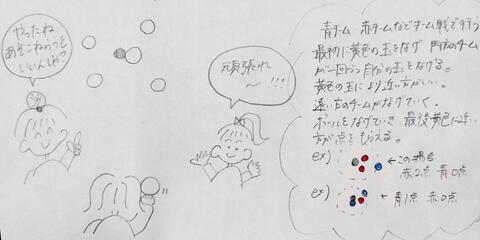 やったね
あそこねらうと
いいんじゃ?
頑張れ
〜!!!
青チーム 赤チームなどチーム戦で行う
最初に黄色の玉をなげ 両方のチーム
が一回づつ自分の玉をなげる。
黄色の玉により近い方がいい。
遠い方のチームがなげていく。
ボールをなげていき 最後黄色に近い
方が点をもらえる。
ex)
←この場合
赤2点 青0点
ex)
← 青1点 赤0点